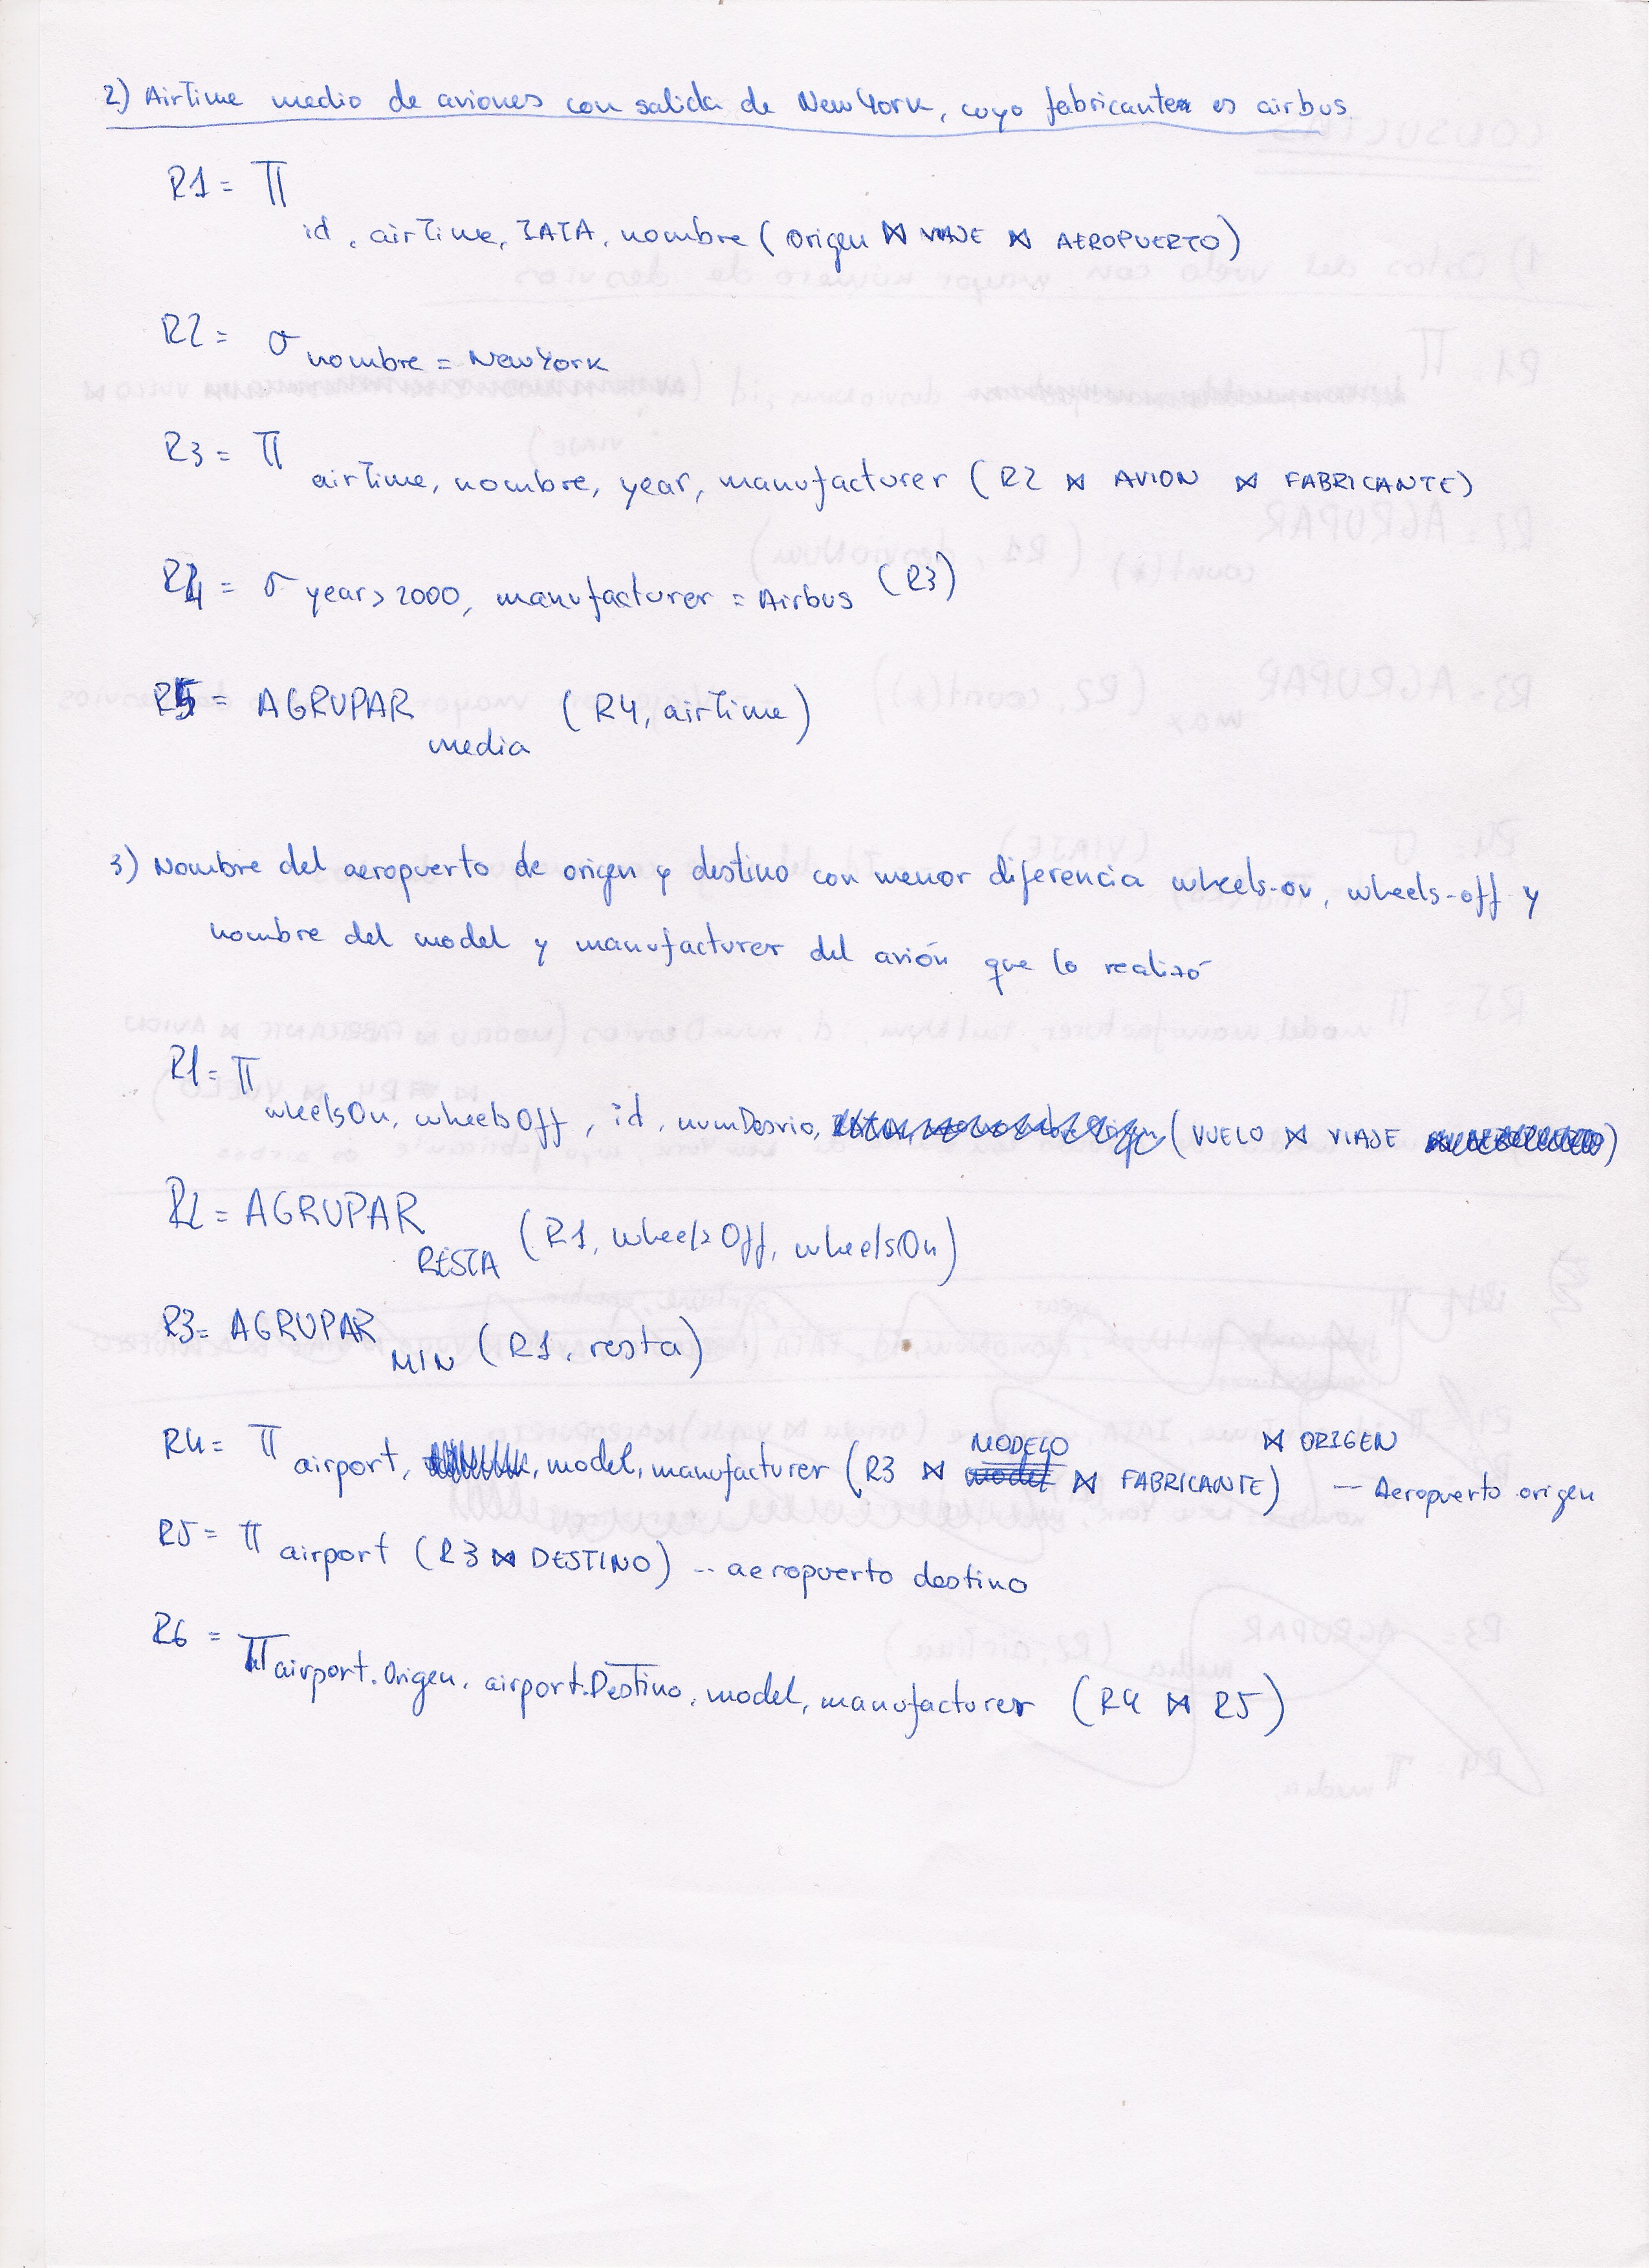 2) Airtime medio de aviones con salida de New York, cuyo fabricante es airbus
R1 = π
id, airtime, IATA, nombre (origen ⋈ VIAJE ⋈ AEROPUERTO)
R2 = σ nombre = New York
R3 = π airtime, nombre, year, manufacturer (R2 ⋈ AVION ⋈ FABRICANTE)
R4 = σ year > 2000, manufacturer = Airbus (R3)
R5 = AGRUPAR media (R4, airtime)
3) Nombre del aeropuerto de origen y destino con menor diferencia wheels-on, wheels-off y
nombre del model y manufacturer del avión que lo realizó
R1 = π
wheelsOn, wheelsOff, id, numDesvio, (VUELO ⋈ VIAJE )
R2 = AGRUPAR RESTA (R1, wheelsOff, wheelsOn)
R3 = AGRUPAR MIN (R1, resta)
R4 = π airport, , model, manufacturer (R3 ⋈ MODELO ⋈ FABRICANTE) ⋈ ORIGEN -- Aeropuerto origen
R5 = π airport (R3 ⋈ DESTINO) -- aeropuerto destino
R6 = π airport.Origen, airport.Destino, model, manufacturer (R4 ⋈ R5)